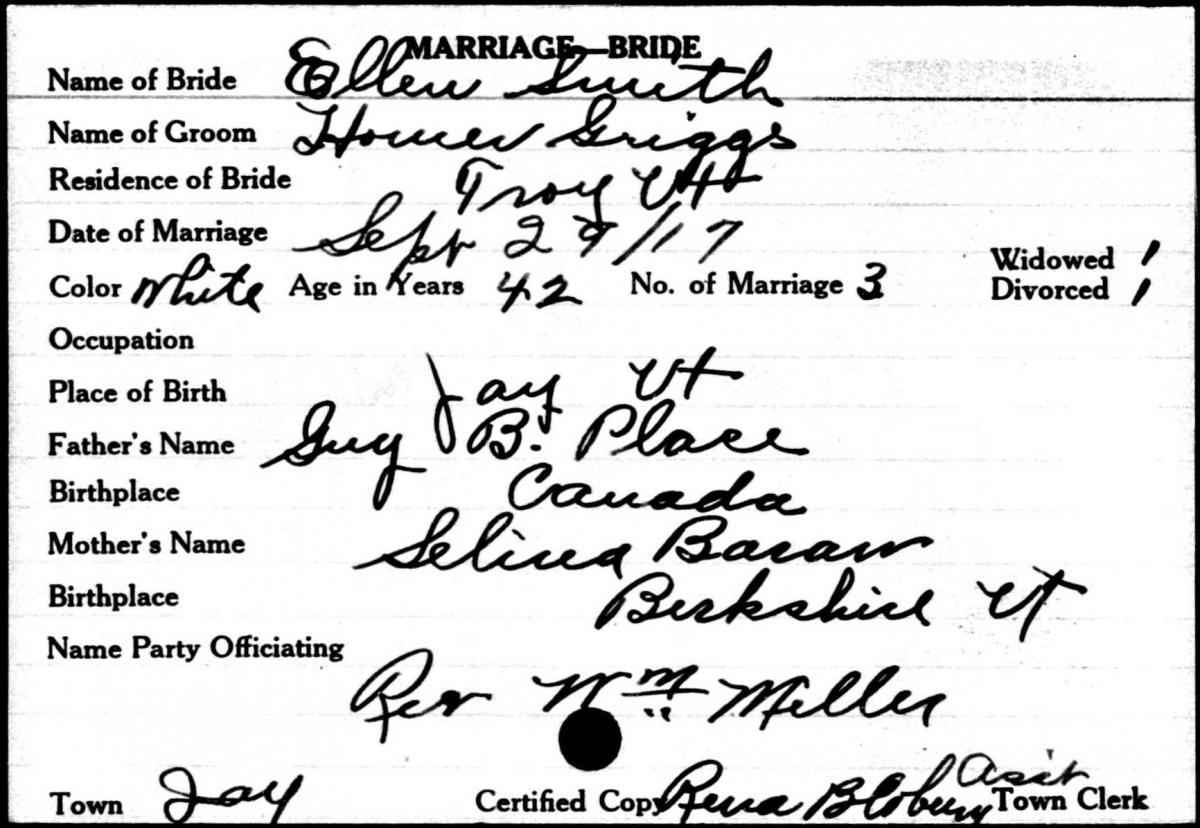 MARRIAGE—BRIDE
Name of Bride Ellen Smith
Name of Groom Homer Griggs
Residence of Bride Troy Vt
Date of Marriage Sept 29/17
Widowed 1
Color White Age in Years 42 No. of Marriage 3 Divorced 1
Occupation
Place of Birth Jay Vt
Father's Name Guy B. Place
Birthplace Canada
Mother's Name Selina Baraw
Birthplace Berkshire Vt
Name Party Officiating
Rev Wm Miller
Asst
Town Jay Certified Copy Rena B Town Clerk